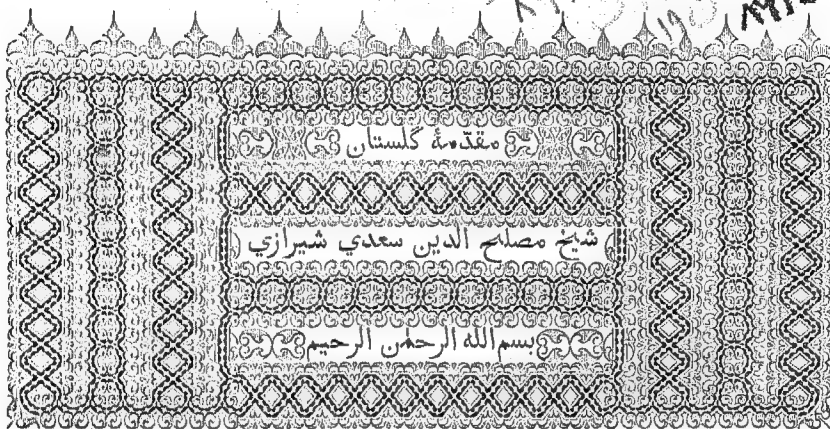 مقدّمهٔ گلستان
شيخ مصلح الدين سعدي شيرازي
بسم الله الرحمٰن الرحيم